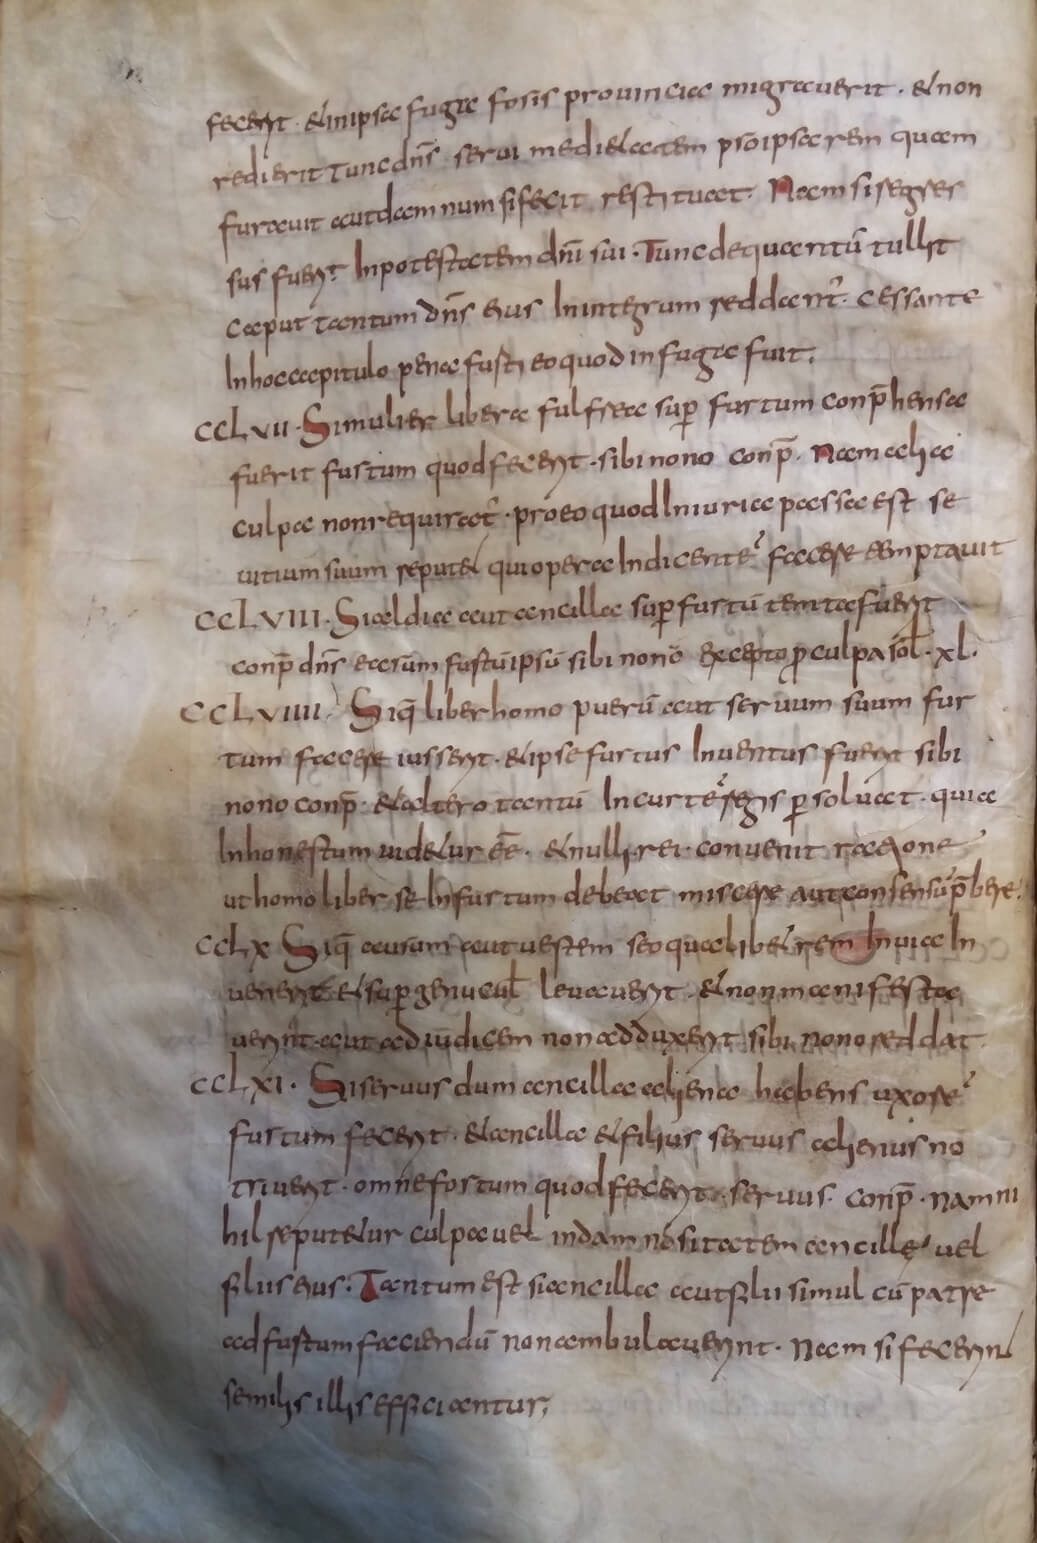 fecerit · et in ipsa fuga foris provincia migraverit · et non
redierit tunc dn̄s servi medietatem p̱ soipsa rem quam
furavit aut damnum si fecit restituat · Nam si regres
sus fuerit · In potestatem dn̄i sui · Tunc de quantū tullit
Caput tantum dn̄s eius In integrum reddant̄ · cessante
In hoc capitulo pena furti eo quod in fuga fuit;
CCLVII · Si mulier libera fulfrea sup̱ furtum conp̄hensa
fuerit furtum quod fecerit · sibi nono conp̄ · Nam alia
culpa non requirat̄ · pro eo quod Iniuria passa est se
vitium suum reputet qui opera Indicente facere temptavit
CCLVIII · Si aldia aut ancilla sup̱ furtū temta fuerit
conp̄ dn̄s earum furtū ipsū sibi nono excepto p̱ culpa sol̄ · xl ·
CCLVIIII · Siq̄ liber homo puerū aut servum suum fur
tum facere iusserit · et ipse furtus Inventus fuerit sibi
nono conp̄ · et altero tantū In curte regis p̱solvat · quia
Inhonestum videtur ēē · et nulli rei convenit racione
ut homo liber se In furtum debeat miscere aut consensū p̄bere ·
CCLX Siq̄ aurum aut vestem seo qualibet rem In via In
venerit et sup̱ genucul̄ levaverit · et non manifesta
verit · aut ad iudicem non adduxerit sibi nono reddat
CCLXI · Si servus dum ancilla aliena habens uxore
furtum fecerit · et ancilla et filius servus alienus no
triverit · omne fortum quod fecerit · servus · conp̄ · nam ni
hil reputetur culpa vel indamnositatem ancille vel
filius eius · Tantum est si ancilla aut filii simul cū patre
ad furtum faciendū non ambulaverint · Nam si fecerint
semilis illis efficiantur;